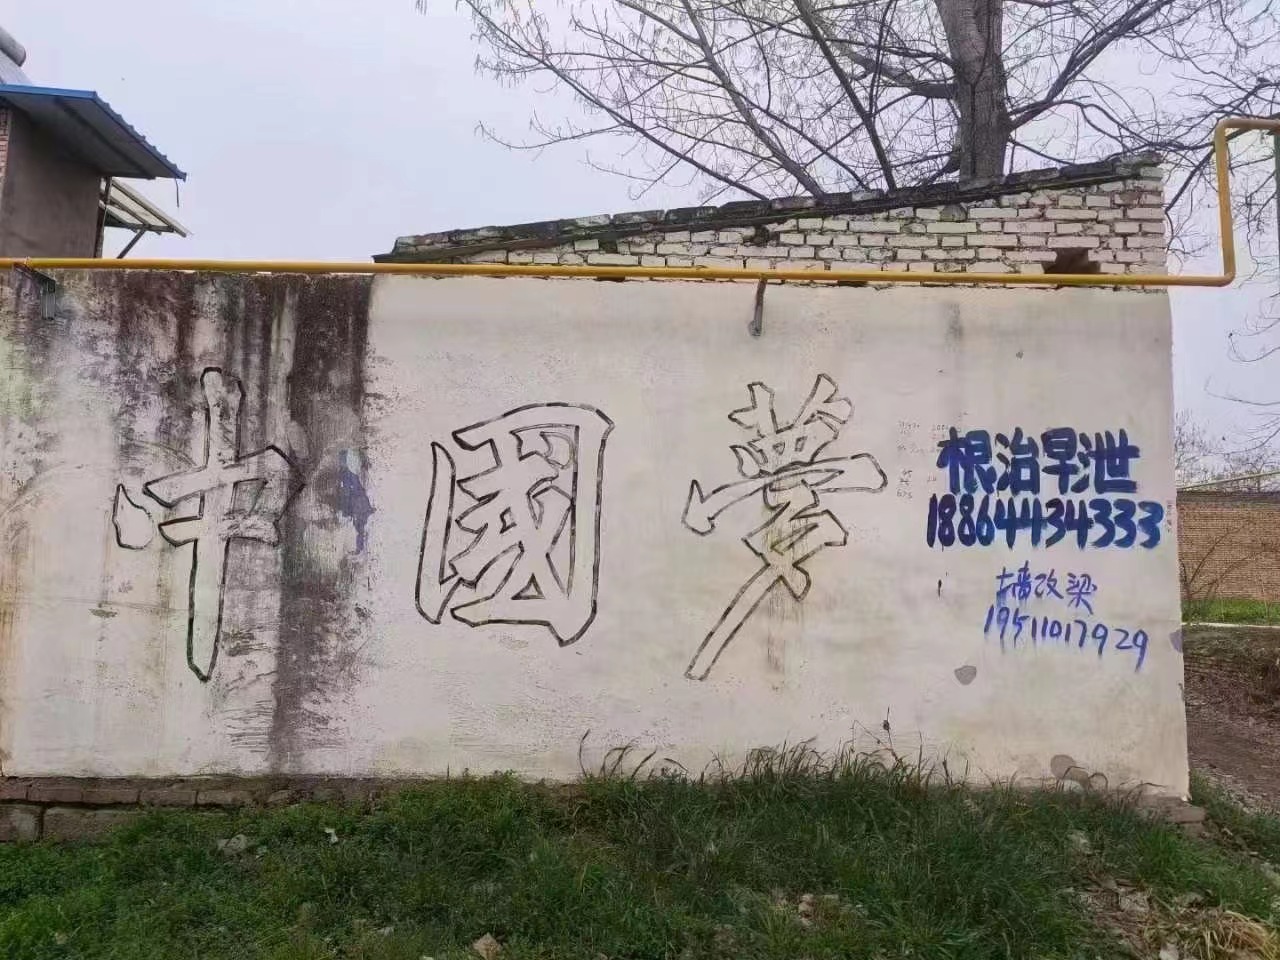 中國夢
根治早泄
18864434333
墙改梁
19511017929